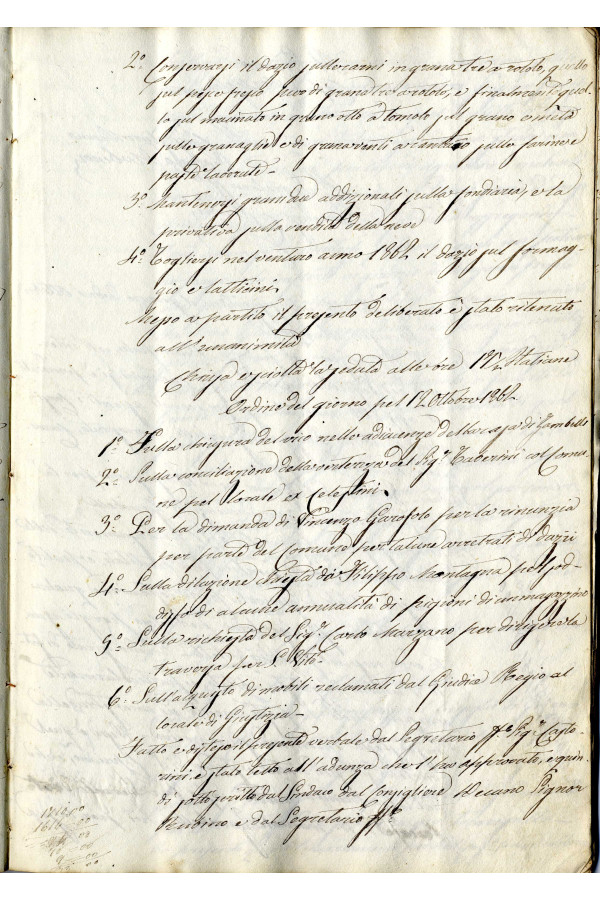 2.° Conservarsi il dazio sulle carni in grana tre a rotolo, quello
sul pesce fresco pure di grana tre a rotolo, e finalmente quel-
lo sul macinato in grana otto a tomolo sul grano e metà
sulle granaglie e di grana venti a cantaro sulle farine e
paste lavorate -
3.° Mantenersi grana due addizionali sulla fondiaria, e la
privativa sulla vendita della neve
4.° Togliersi nel venturo anno 1862 il dazio sul formag-
gio e latticini.
Messo a partito il presente deliberato è stato ritenuto
all'unanimità
Chiusa e sciolta la seduta alle ore Italiane
Ordine del giorno pel 12 Ottobre 1862
1.° Sulla chiusura del vico nelle adiacenze della casa di
2.° Sulla conciliazione della vertenza del Sig.r col Comu-
ne pel locale ex Celestini.
3.° Per la dimanda di Vincenzo Garofolo per la rinunzia
per parte del Comune per talune arretrati di dazzi
4.° Sulla dilazione chiesta da Filippo Montagna pel sod-
disfo di alcune annualità di pigioni di magazzino
5.° Sulla richiesta del Sig.r Carlo Marzano per dirigere la
traversa per S. Vito -
6.° Sull'acquisto di mobili reclamati dal Giudice Regio al
locale di Giustizia -
Fatto e disteso il presente verbale dal Segretario ff. Sig.r Casto-
rini è stato letto all'adunza che l'ha approvato, e quin-
di sottoscritto dal Sindaco dal Consigliere Decano Signor
Rubino e dal Segretario ff.